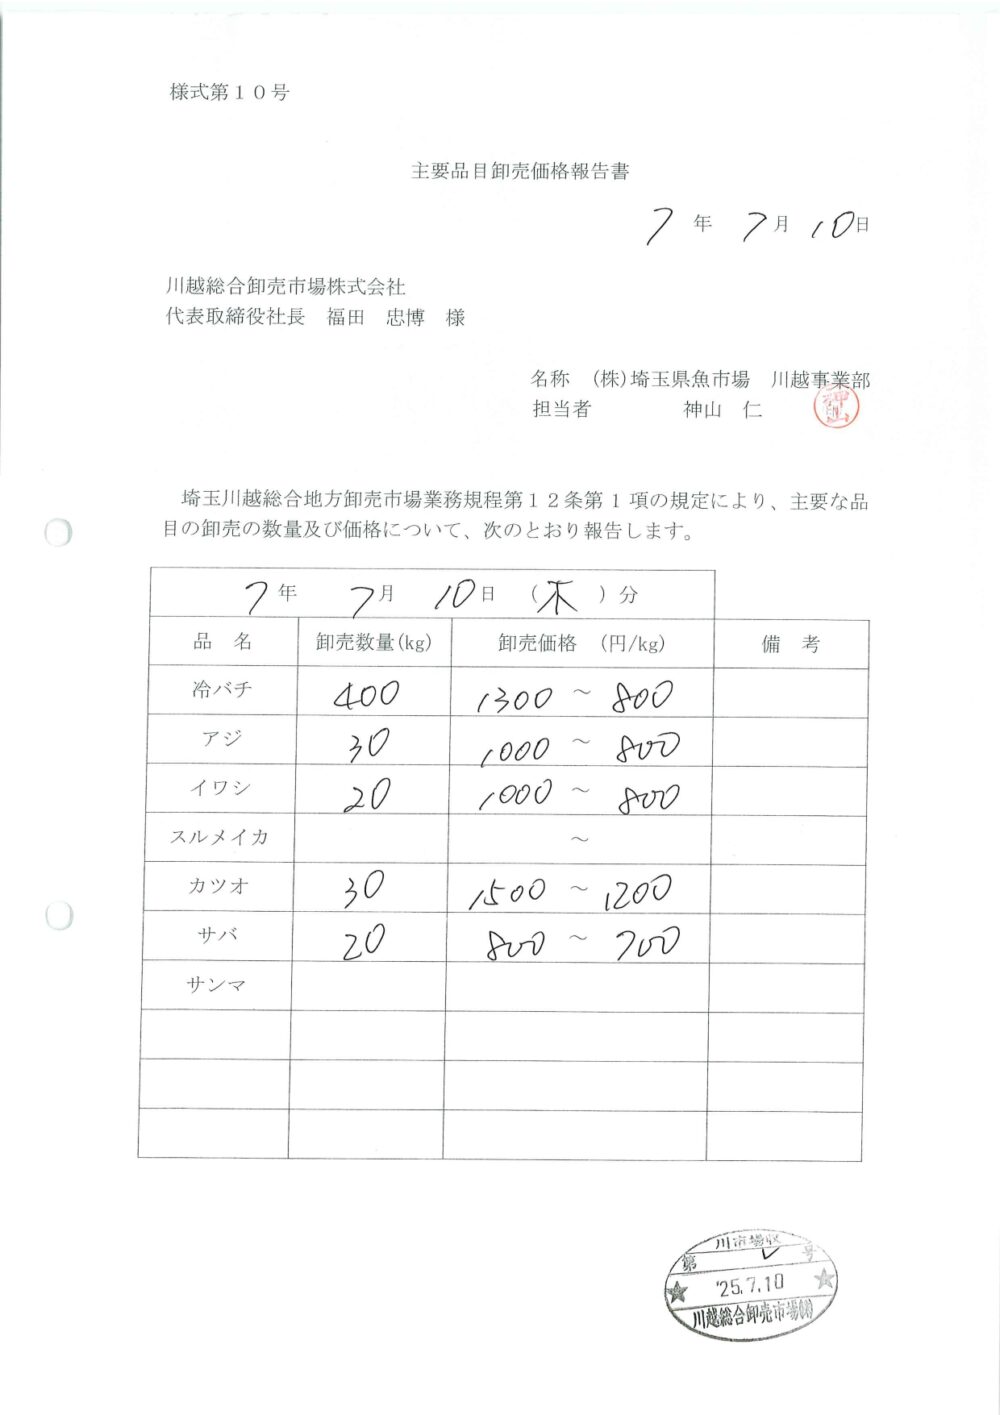 様式第１０号
主要品目卸売価格報告書
7 年 7 月 10 日
川越総合卸売市場株式会社
代表取締役社長 福田 忠博 様
名称 (株)埼玉県魚市場 川越事業部
担当者 神山 仁
神山
埼玉川越総合地方卸売市場業務規程第１２条第１項の規定により、主要な品
目の卸売の数量及び価格について、次のとおり報告します。
7 年 7 月 10 日 （木）分
品 名 卸売数量(kg) 卸売価格 (円/kg) 備 考
冷バチ 400 1300 ～ 800
アジ 30 1000 ～ 800
イワシ 20 1000 ～ 800
スルメイカ ～
カツオ 30 1500 ～ 1200
サバ 20 800 ～ 700
サンマ
川市場収
第 号
'25.7.10
川越総合卸売市場(株)